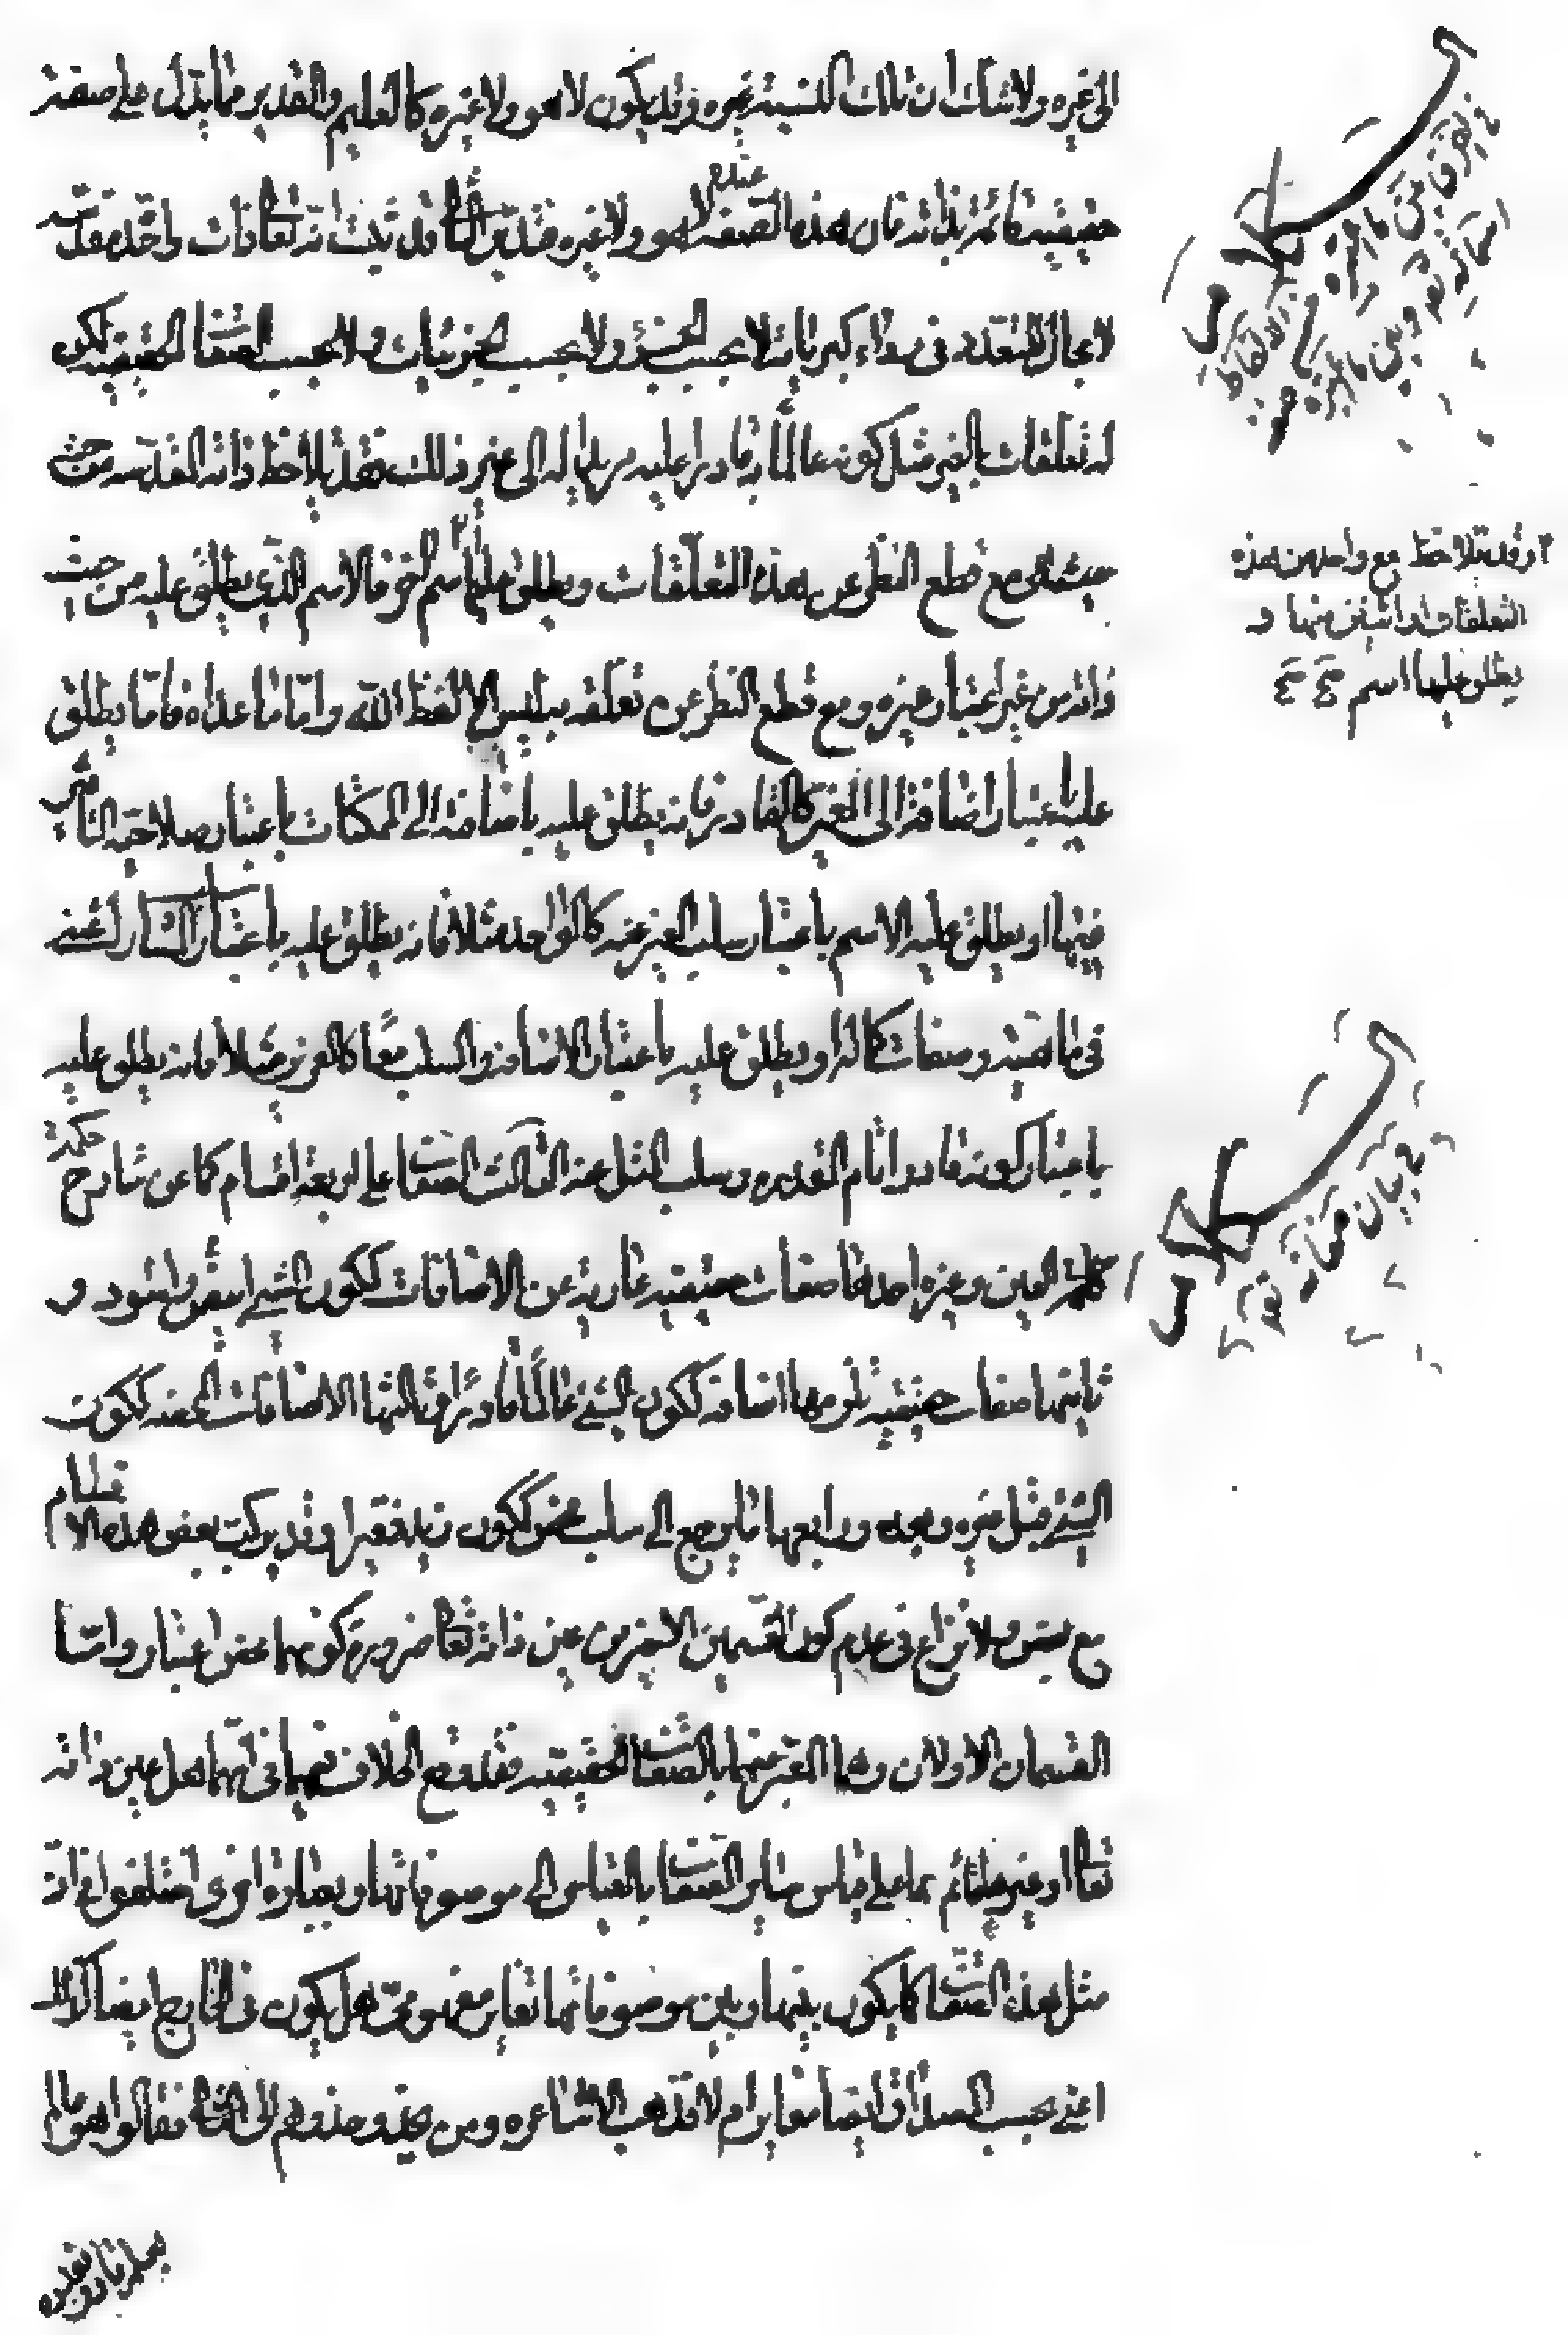 الى غيره ولا شك ان تلك النسبة غيره وقد يكون لا هو ولا غيره كالعليم والقدير مما يدل على صفة
حقيقية قائمة بذاته فان هذه الصفة لا هو ولا غيره عندهم فتدبر الثالث قد ثبت انه تعالى ذات واحدة مقدسة
لا مجال للتعدد فى رداء كبريائه لا بحسب الجزء ولا بحسب الجزئيات ولا بحسب الصفات الحقيقية لكن
له تعلقات بالغير مثل كونه عالما به قادرا عليه مريدا له الى غير ذلك فقد يلاحظ ذاته المقدسة من حيث
حيث هى مع قطع النظر عن هذه التعلقات ويطلق عليها اسم اخر فالاسم الذي يطلق عليه من حيث
ذاته من غير اعتبار غيره ومع قطع النظر عن تعلقه به ليس الا لفظ الله واما ما عداه فاما يطلق
عليه باعتبار اضافة الى الغير كالقادر فانه يطلق عليه باضافته الى الممكنات باعتبار صلاحية التأثير
فيها او يطلق عليه الاسم باعتبار سلب الغير عنه كالواحد مثلا فانه يطلق عليه باعتبار سلب المشارك اعنى
فى ماهيته وصفات كماله او يطلق عليه باعتبار الاضافة والسلب معا كالعزيز مثلا فانه يطلق عليه
باعتبار كونه قادرا تام القدرة وسلب المثل عنه الثالث الصفات على اربعة اقسام كما عن شارح حكمة
العين وغيره احدها صفات حقيقية عارية عن الاضافات ككون الشىء ابيض واسود و
ثانيتها صفات حقيقية تلزمها اضافة ككون الشىء عالما قادرا وثالثها الاضافات المحضة ككون
الشىء قبل غيره وبعده ورابعها ما يرجع الى سلب محض ككون زيد فقيرا وقد يركب بعض هذه الاقسام
مع بعض ولا نزاع فى عدم كون القسمين الاخيرين عين ذاته تعالى ضرورة كونهما محض اعتبار واما
القسمان الاولان وهما المعبر عنهما بالصفات الحقيقية فقد وقع الخلاف فيهما فى انهما هل عين ذاته
تعالى او غيره قائم بها على قياس سائر الصفات بالقياس الى موصوفاتها وبعبارة اخرى اختلفوا فى ان
مثل هذه الصفات كما يكون بينها وبين موصوفاتها تغاير مفهومى هل يكون فى الخارج ايضا كذلك
اعنى بحسب المصداق ايضا متغاير ام لا فذهب الاشاعرة ومن يحذو حذوهم الى الثانى فقالوا هو عالم
بعلم قادر بقدرة
فى الفرق بين ما
اسمائه تعالى وبين
من الالفاظ
او قد يلاحظ مع واحد من هذه
التعلقات او اثنين منها و
يطلق عليها اسم صح صح
فى بيان صفاته تعالى